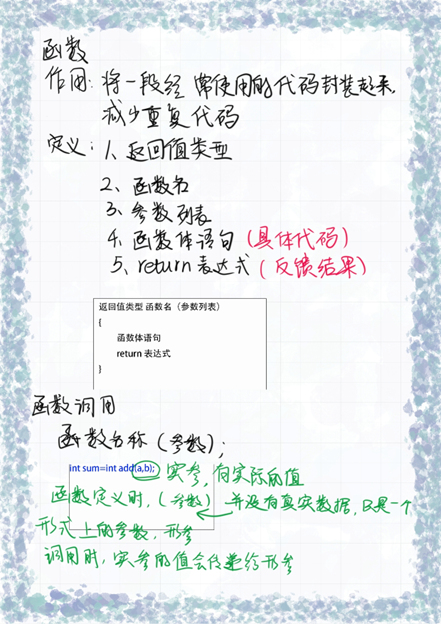 函数
作用:将一段经常使用的代码封装起来,
减少重复代码
定义:1、返回值类型
2、函数名
3、参数列表
4、函数体语句(具体代码)
5、return表达式(反馈结果)
返回值类型 函数名（参数列表）
{
函数体语句
return 表达式
}
函数调用
函数名称(参数);
int sum=int add(a,b); 实参,有实际的值
函数定义时,(参数) 并没有真实数据,只是一个
形式上的参数,形参
调用时,实参的值会传递给形参